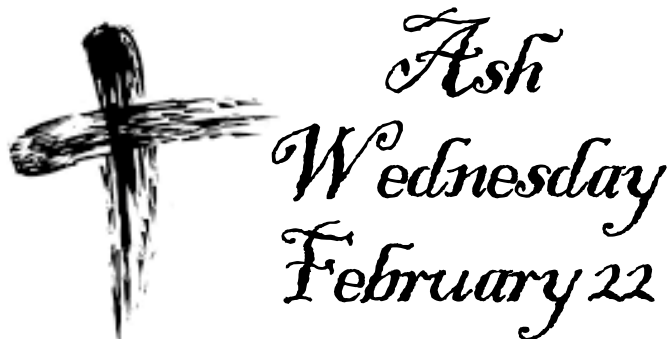 Ash
Wednesday
February 22